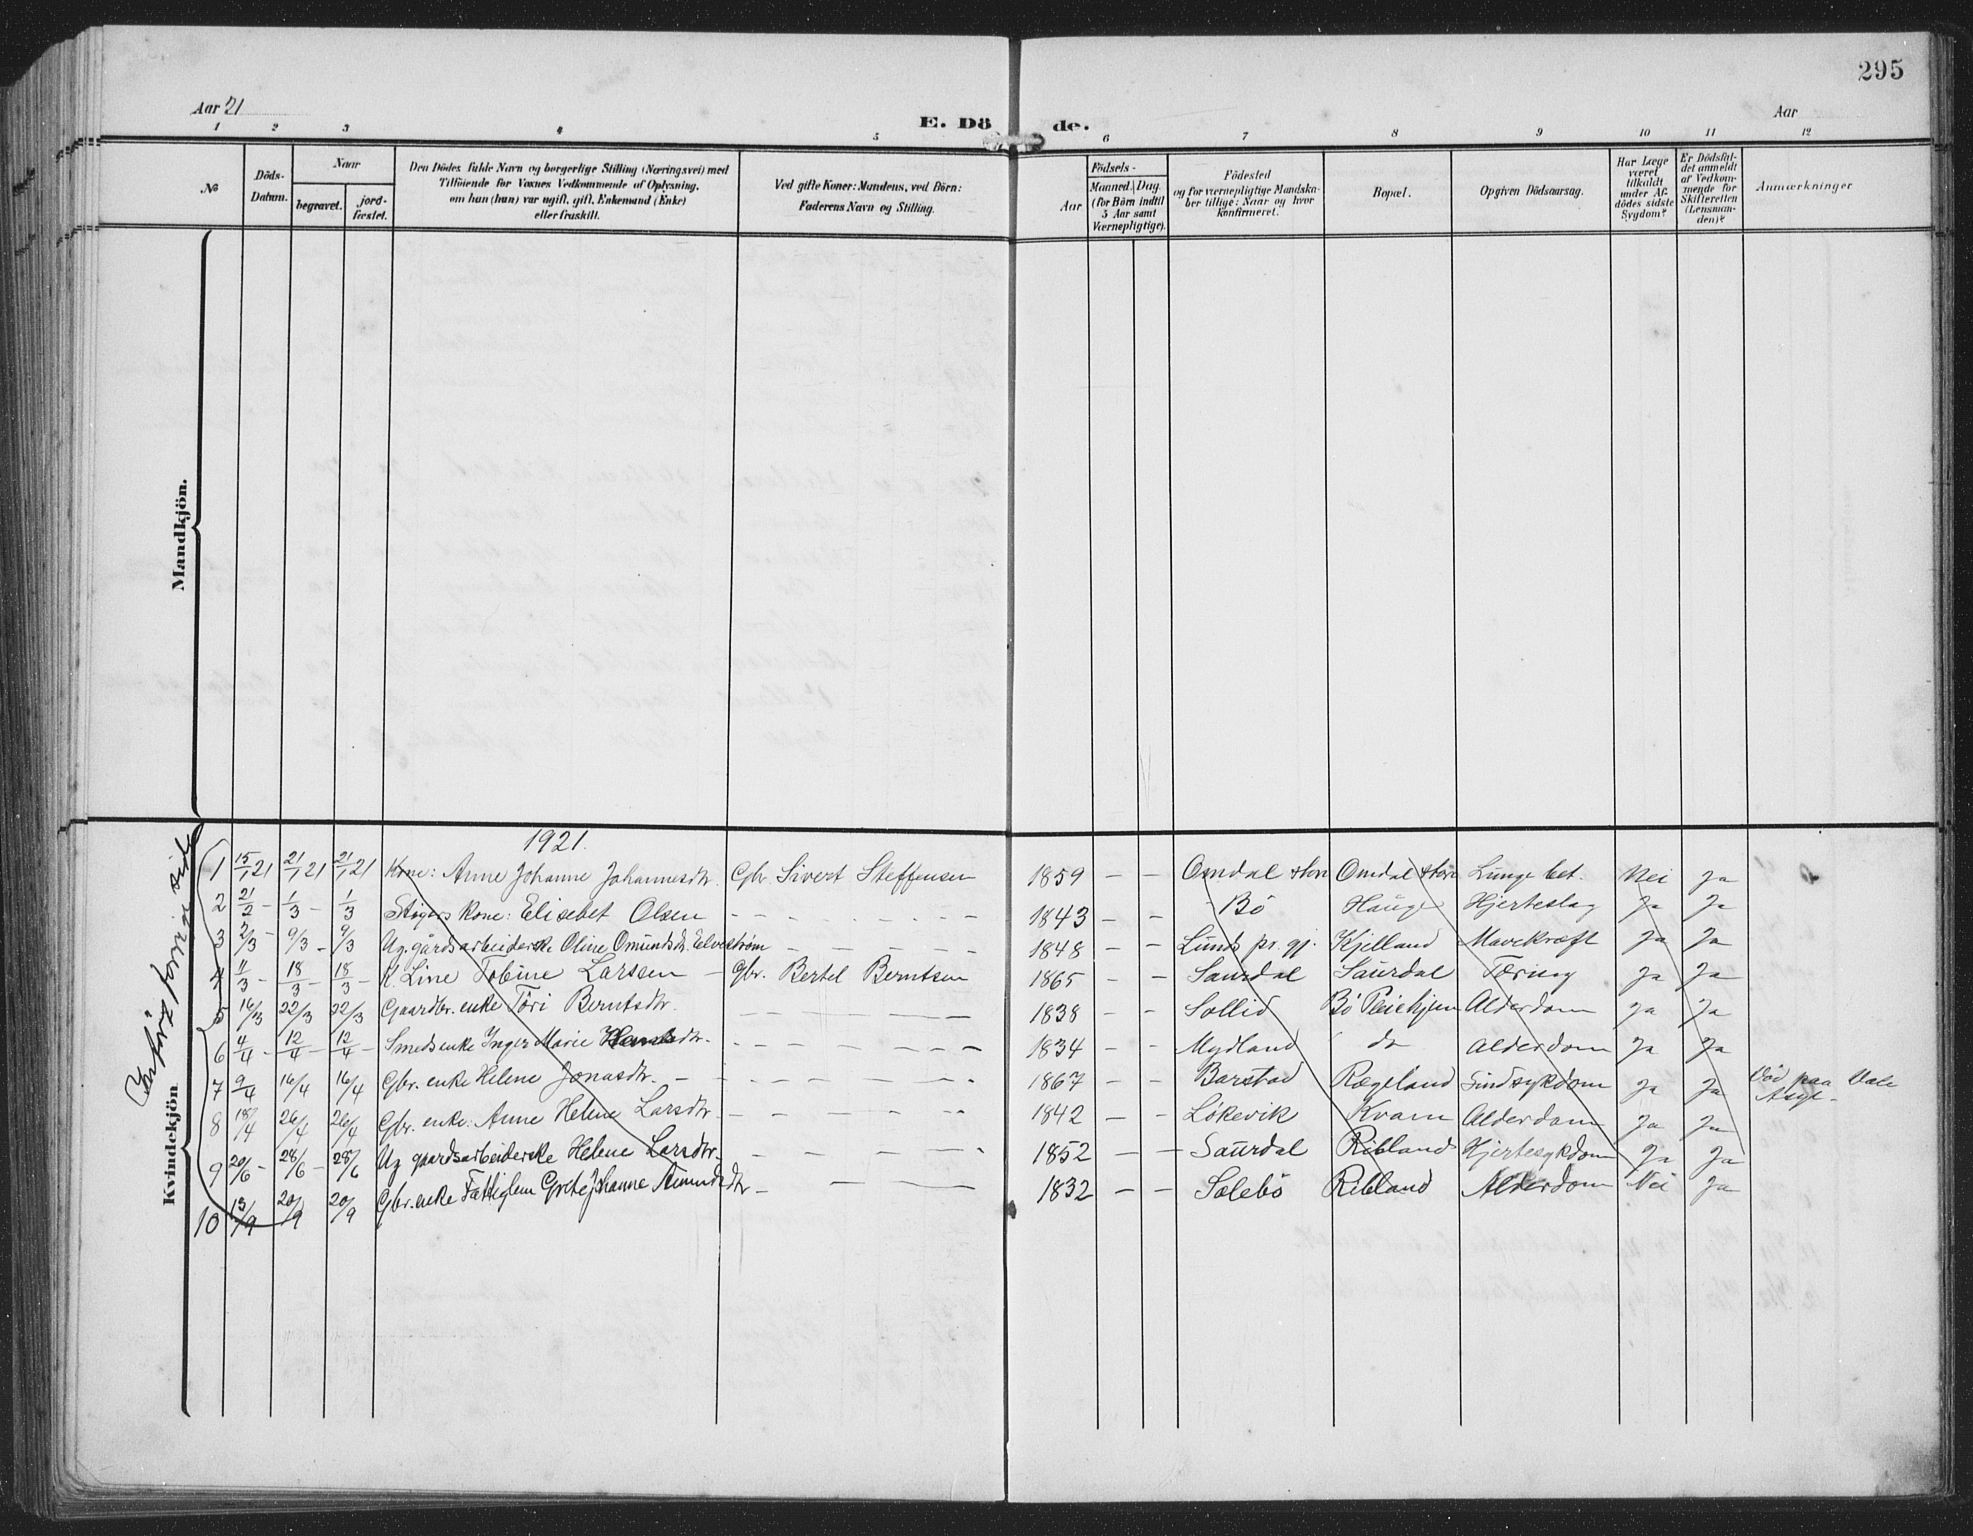 295
Aar 21
Aar
E. Dö de.
1 2 3 4 5 6 7 8 9 10 11 12
№
Döds-Datum.
Naar
begravet.
jord-fæstet.
Den Dödes fulde Navn og borgerlige Stilling (Næringsvei) med
Tilföiende for Voxnes Vedkommende af Oplysning,
om han (hun) var ugift, gift, Enkemand (Enke)
eller fraskilt.
Ved gifte Koner: Mandens, ved Börn:
Faderens Navn og Stilling.
Födsels-
Aar
Maaned. Dag.
(for Börn indtil
5 Aar samt
Værnepligtige).
Födested
og for værnepligtige Mandska-
ber tillige: Naar og hvor
konfirmeret.
Bopæl.
Opgiven Dödsaarsag.
Har Læge
været
tilkaldt
under Af-
dödes sidste
Sygdom?
Er Dödsfal-
det anmeldt
af Vedkom-
mende for
Skifteretten
(Lensman-
den)?
Anmærkninger
Mandkjön.
Kvindekjön
Indført forrige side
1921.
1 15/1 21 21/1 21 21/1 21 Kone: Anne Johanne Johannesdtr. Gbr. Sivert Steffensen 1859 — — Omdal store Omdal store Lunge bet. Nei Ja
2 21/2 – 1/3 – 1/3 Støgers kone: Elisebet Olsen – – – 1843 – – Bö Hauge Hjerteslag Ja Ja
3 2/3 – 9/3 – 9/3 Ug. gårdsarbeiderske Oline Omundsdtr. Elvestrøm – – – 1848 – – Lunds pr. gj. Kjelland Mavekræft Ja Ja
4 11/3 – 18/3 – 18/3 – K. Line Tobine Larssen – Gbr. Bertel Berntsen 1865 – – Saurdal Saurdal Tæring Ja Ja
5 16/3 22/3 22/3 Gaardbr. enke Töri Berntsdtr. – – – 1838 – – Sollid Bö Pleiehjem Alderdom Ja Ja
6 4/4 – 12/4 – 12/4 – Smeds enke Inger Marie Hansdtr. – – – 1834 – – Mydland do Alderdom Ja Ja
7 9/4 16/4 16/4 Gbr. enke Helene Jonasdtr. – – – 1867 – – Barstad Rægeland Sindsykdom Ja Ja Död paa Dale
Asyl –
8 18/4 26/4 26/4 Gbr. enke: Anne Helene Larsdtr. – – – 1842 – – Løkevik Kvam Alderdom Ja Ja
9 20/6 – 28/6 – 28/6 Ug gaardsarbeiderske Helene Larsdtr. – – – 1852 – – Saurdal Ribland Hjertesykdom Ja Ja
10 13/9 20/9 20/9 Gbr. enke Fattiglem Grete Johanne Amundsdtr – – – 1832 – – Solebö Ribland Alderdom Nei Ja